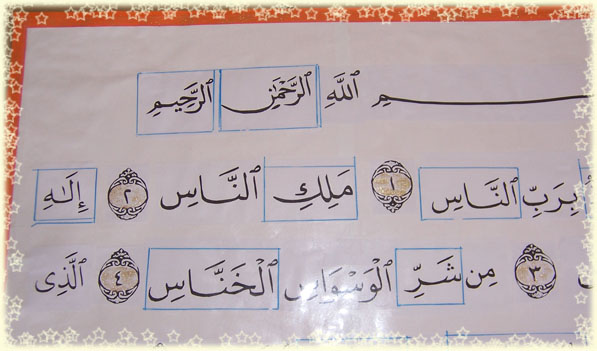 ـمِ ٱللَّهِ ٱلرَّحْمَٰنِ ٱلرَّحِيمِ
بِرَبِّ ٱلنَّاسِ ١ مَلِكِ ٱلنَّاسِ ٢ إِلَٰهِ
٣ مِن شَرِّ ٱلْوَسْوَاسِ ٱلْخَنَّاسِ ٤ ٱلَّذِى